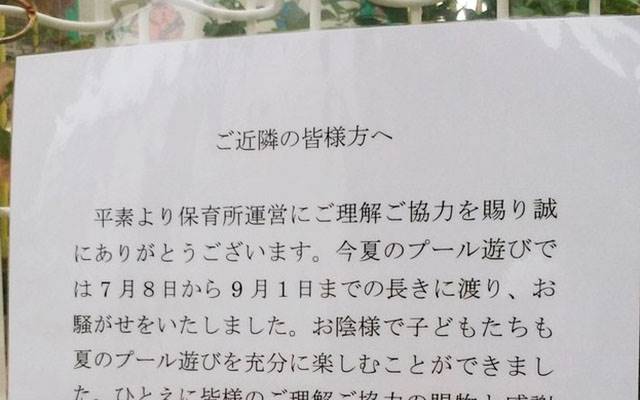 ご近隣の皆様方へ
平素より保育所運営にご理解ご協力を賜り誠
にありがとうございます。今夏のプール遊びで
は７月８日から９月１日までの長きに渡り、お
騒がせをいたしました。お陰様で子どもたちも
夏のプール遊びを充分に楽しむことができまし
た。ひとえに皆様のご理解ご協力の賜物と感謝